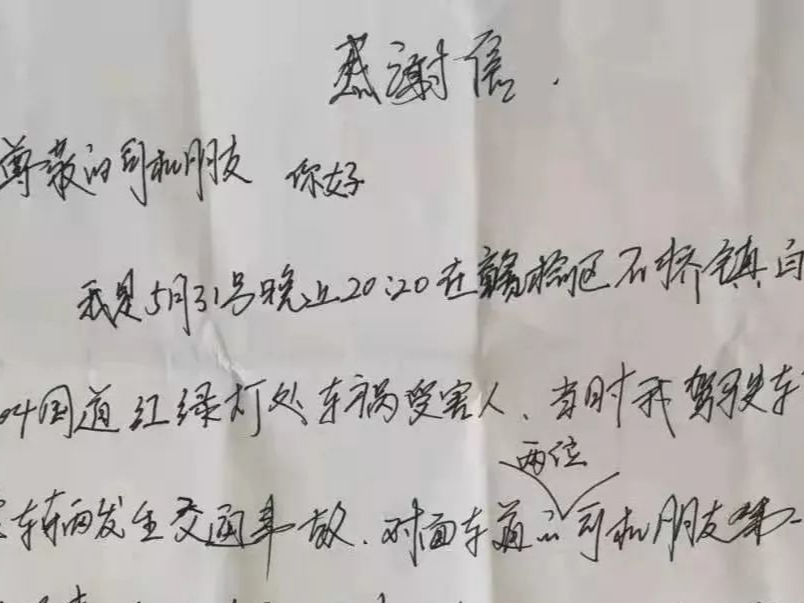 感谢信.
尊敬的司机朋友 你好
我是5月31号晚上20:20在赣榆区石桥镇
04国道红绿灯处车祸受害人、当时我驾驶车
两位
车辆发生交通事故、对面车道的司机朋友第一